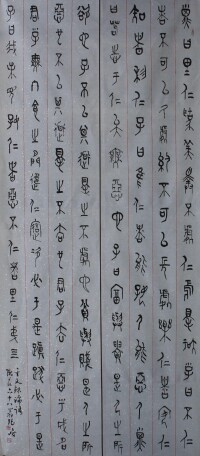 子曰里仁為美擇不處仁焉得知子曰不仁
者不可以久處約不可以長處樂仁者安仁
知者利仁子曰唯仁者能好人能惡人子
曰苟志于仁矣無惡也子曰富與貴是人之所
欲也不以其道得之不處也貧與賤是人之所
惡也不以其道得之不去也君子去仁惡乎成名
君子無終食之間違仁造次必于是顛沛必于是
子曰我未見好仁者惡不仁者里仁